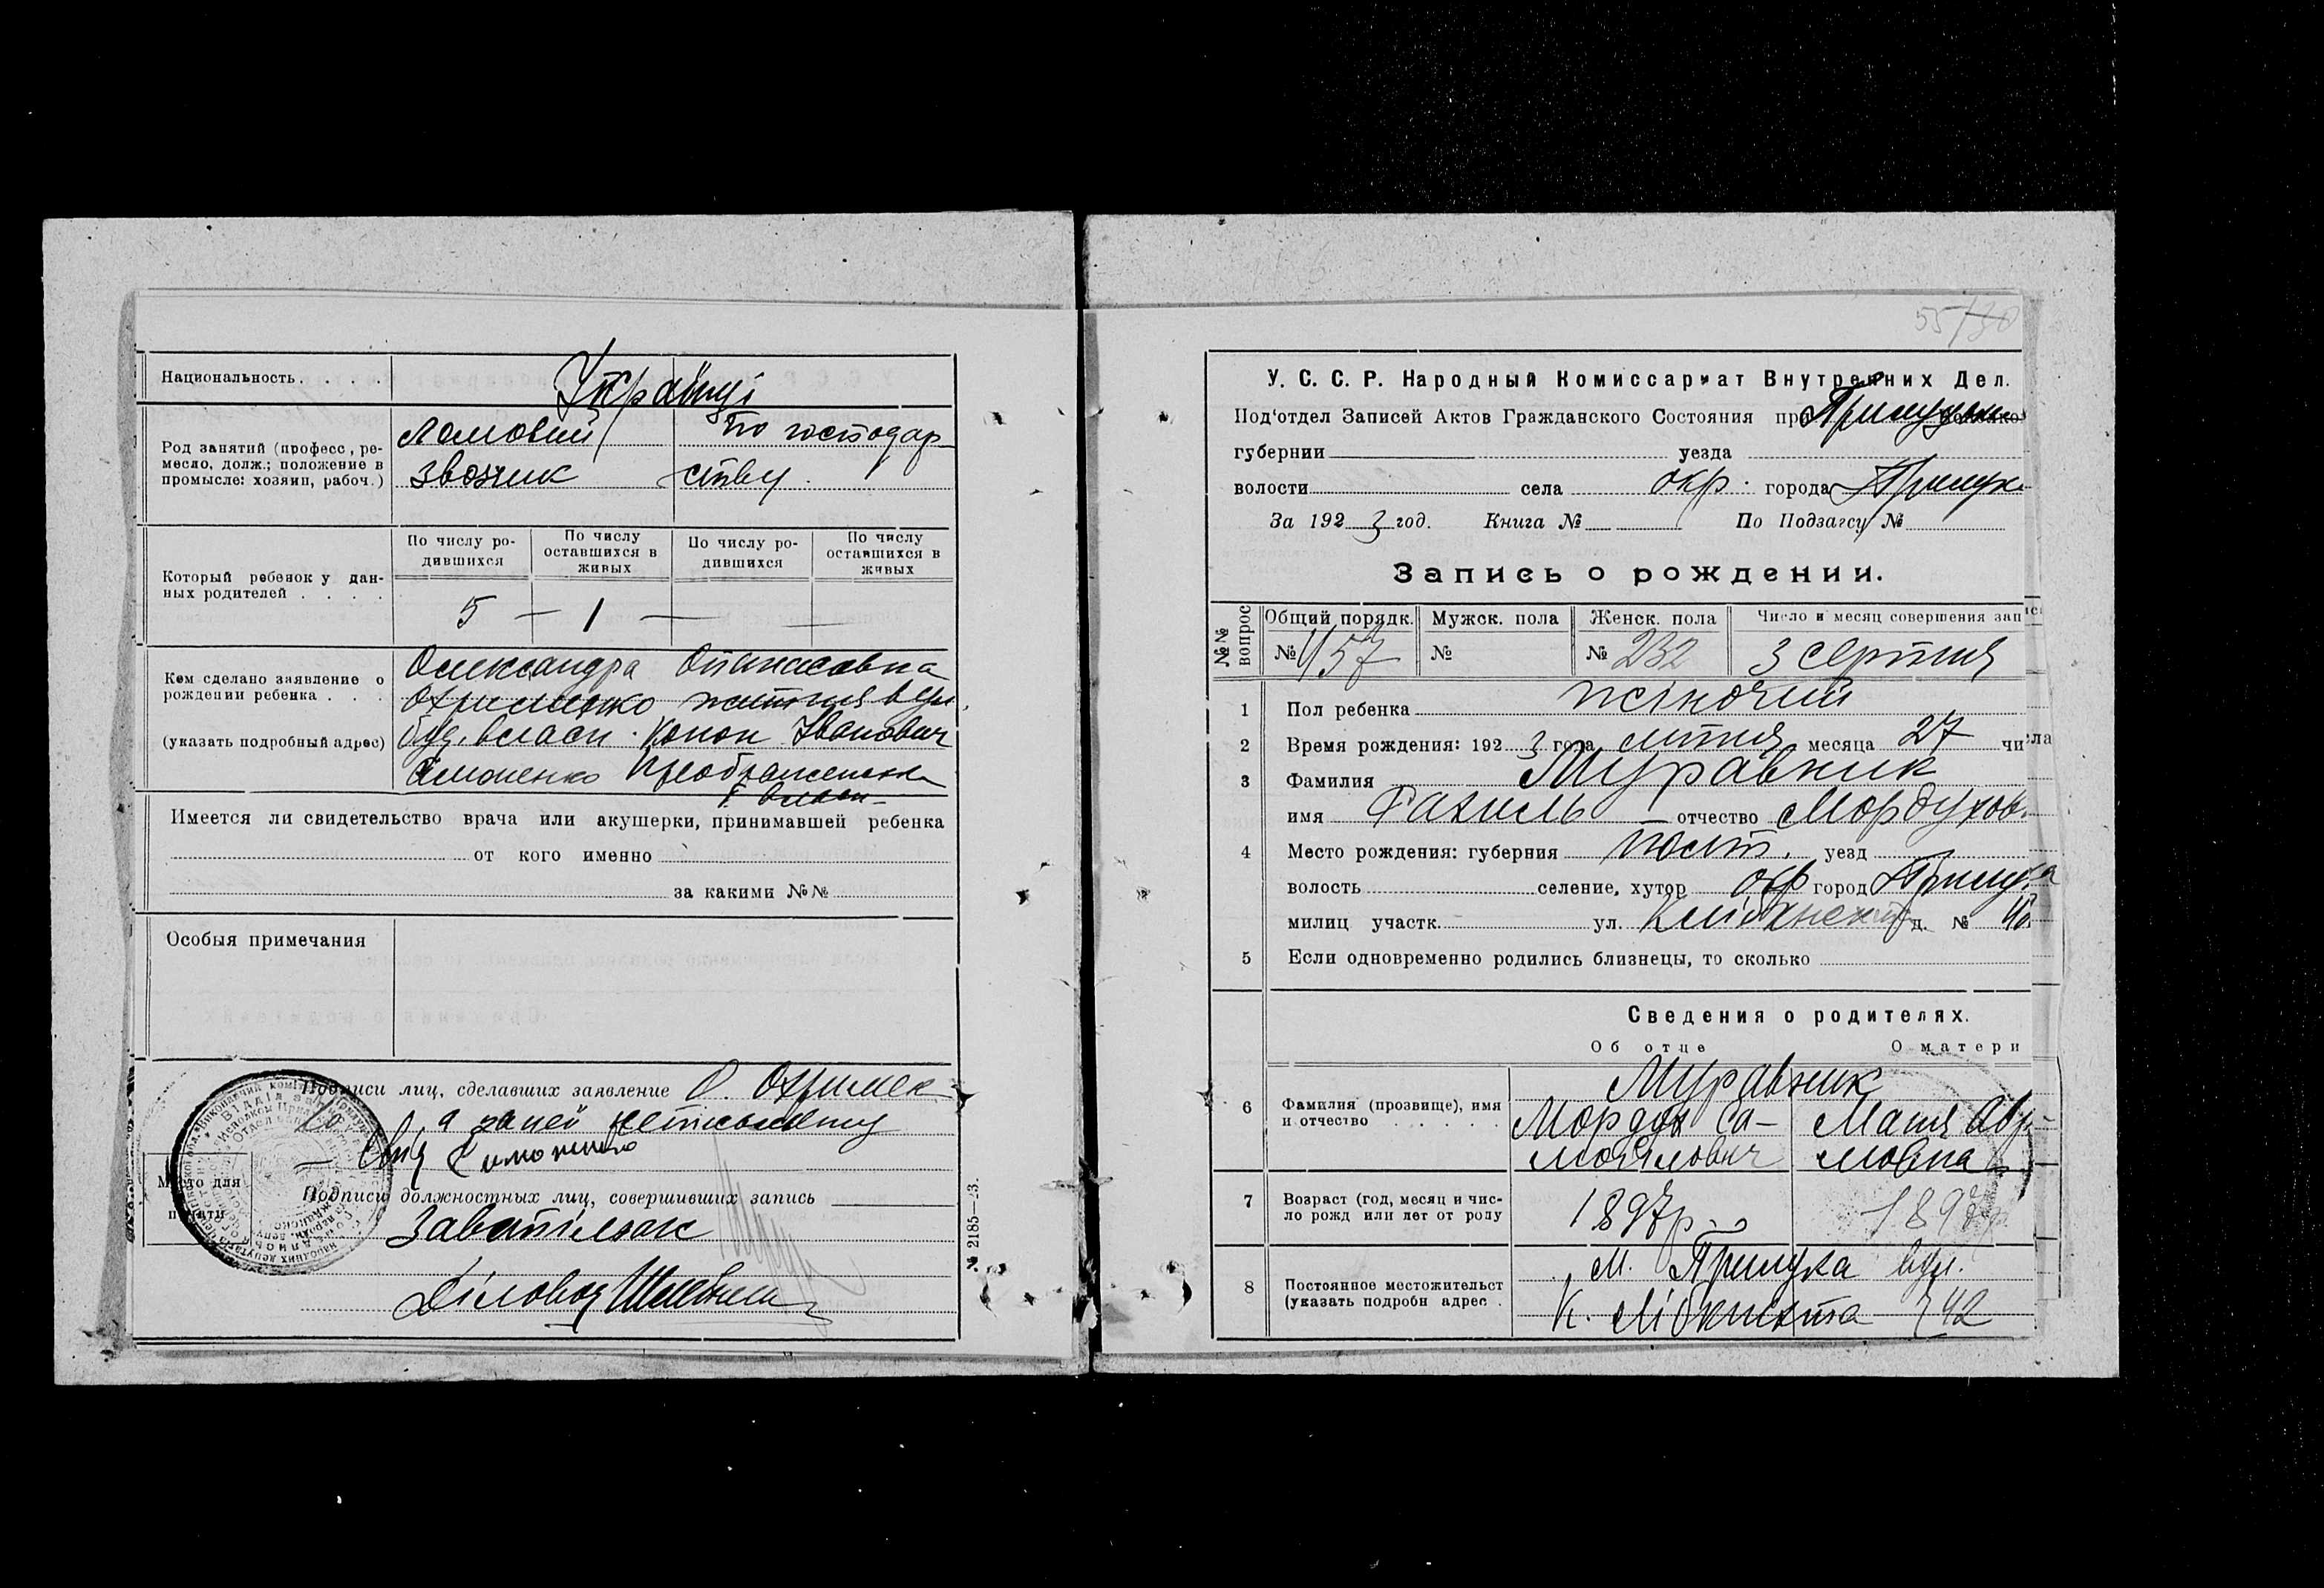 Национальность. . . . . Українці
Род занятий (професс, ре-
месло, долж.; положение в
промысле: хозяин, рабоч.)
Ломовий По господар-
звозчик ству.
Который ребенок у дан-
ных родителей . . . .
По числу ро-
дившихся
По числу
оставшихся в
живых
По числу ро-
дившихся
По числу
оставшихся в
живых
5 — 1 — —
Кем сделано заявление о
рождении ребенка . . .
(указать подробный адрес)
Олександра Опанасовна
Охрименко
буд. власн. Конон Іванович
Симоненко
Имеется ли свидетельство врача или акушерки, принимавшей ребенка
от кого именно
за какими №№
Особыя примечания
Подписи лиц, сделавших заявление О. Охримен-
ко, а за неї неписьменну
Симоненко
Место для
печати
Подписи должностных лиц, совершивших запись
Діловод
№ 2185—23.
55/30
У. С. С. Р. Народный Комиссариат Внутренних Дел.
Под'отдел Записей Актов Гражданского Состояния при
губернии уезда
волости села окр. города Прилука
За 192 3 год. Книга № По Подзагсу №
Запись о рождении.
№№ вопрос
Общий порядк. Мужск. пола Женск. пола Число и месяц совершения зап
№ 457 № № 232 3 серпня
1 Пол ребенка жіночий
2 Время рождения: 192 3 года липня месяца 27 числа
3 Фамилия Муравник
имя Рахиль отчество Мордухов.
4 Место рождения: губерния Полт. уезд
волость селение, хутор окр город Прилука
милиц участк. ул. д. №
5 Если одновременно родились близнецы, то сколько
Сведения о родителях.
Об отце О матери
6 Фамилия (прозвище), имя
и отчество . . . . .
Муравник
Мордух Са- Маня Авр-
мойлович мовна
7 Возраст (год, месяц и чис-
ло рожд или лет от роду
1897 р. 1897
8 Постоянное местожительст
(указать подробн адрес .
м. Прилука вул.
К. Лібкнехта 42